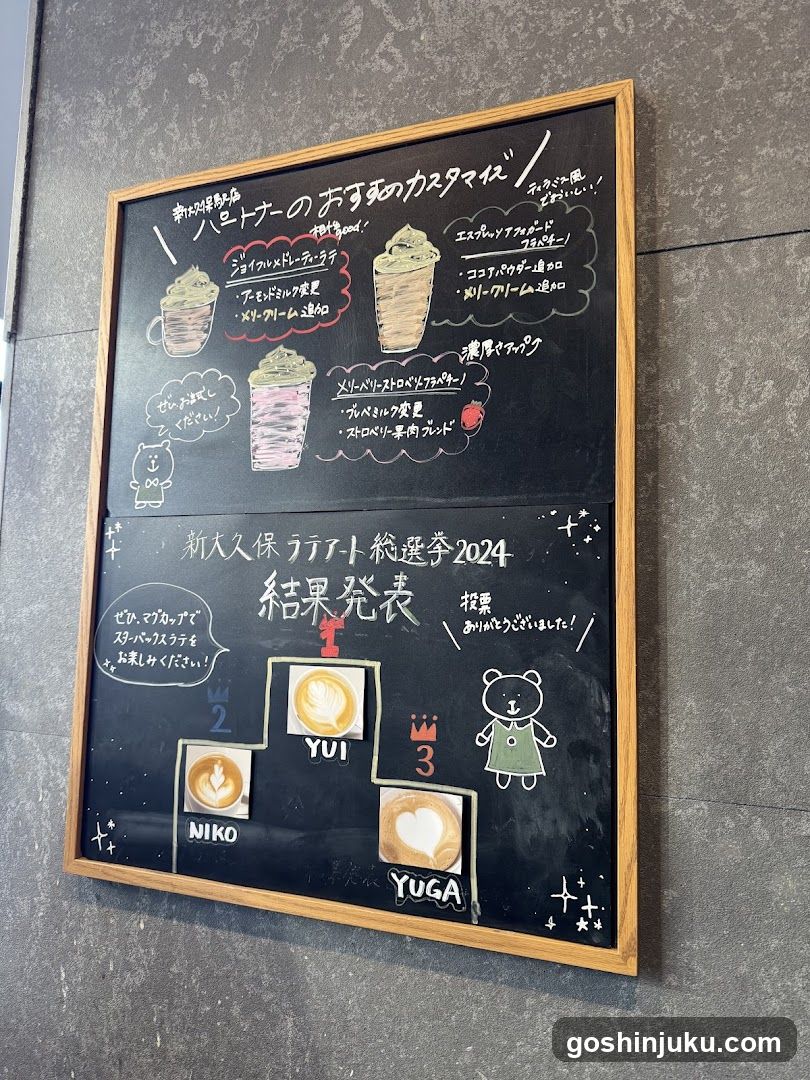 新大久保駅店
パートナーのおすすめカスタマイズ
相性good!
ジョイフルメドレーティーラテ
・アーモンドミルク変更
・メリークリーム追加
ティラミス風
でおいしい!
エスプレッソアフォガード
フラペチーノ
・ココアパウダー追加
・メリークリーム追加
濃厚さアップ↑
メリーベリーストロベリーフラペチーノ
・ブレベミルク変更
・ストロベリー果肉ブレンド
ぜひ、お試し
ください!
新大久保 ラテアート 総選挙2024
結果発表
ぜひ、マグカップで
スターバックスラテを
お楽しみください!
投票
ありがとうございました!
1
YUI
2
NIKO
3
YUGA
goshinjuku.com